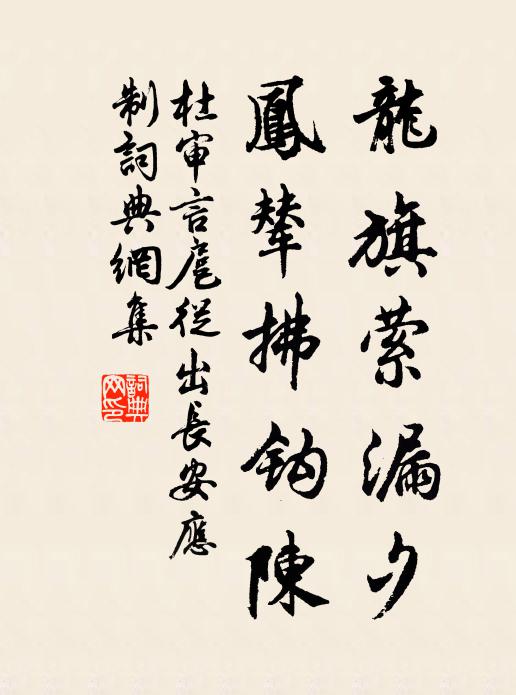 龍旗萦漏夕
鳳輦拂鈎陳
杜审言扈從出長安應
制詞典網集
詞典
网印